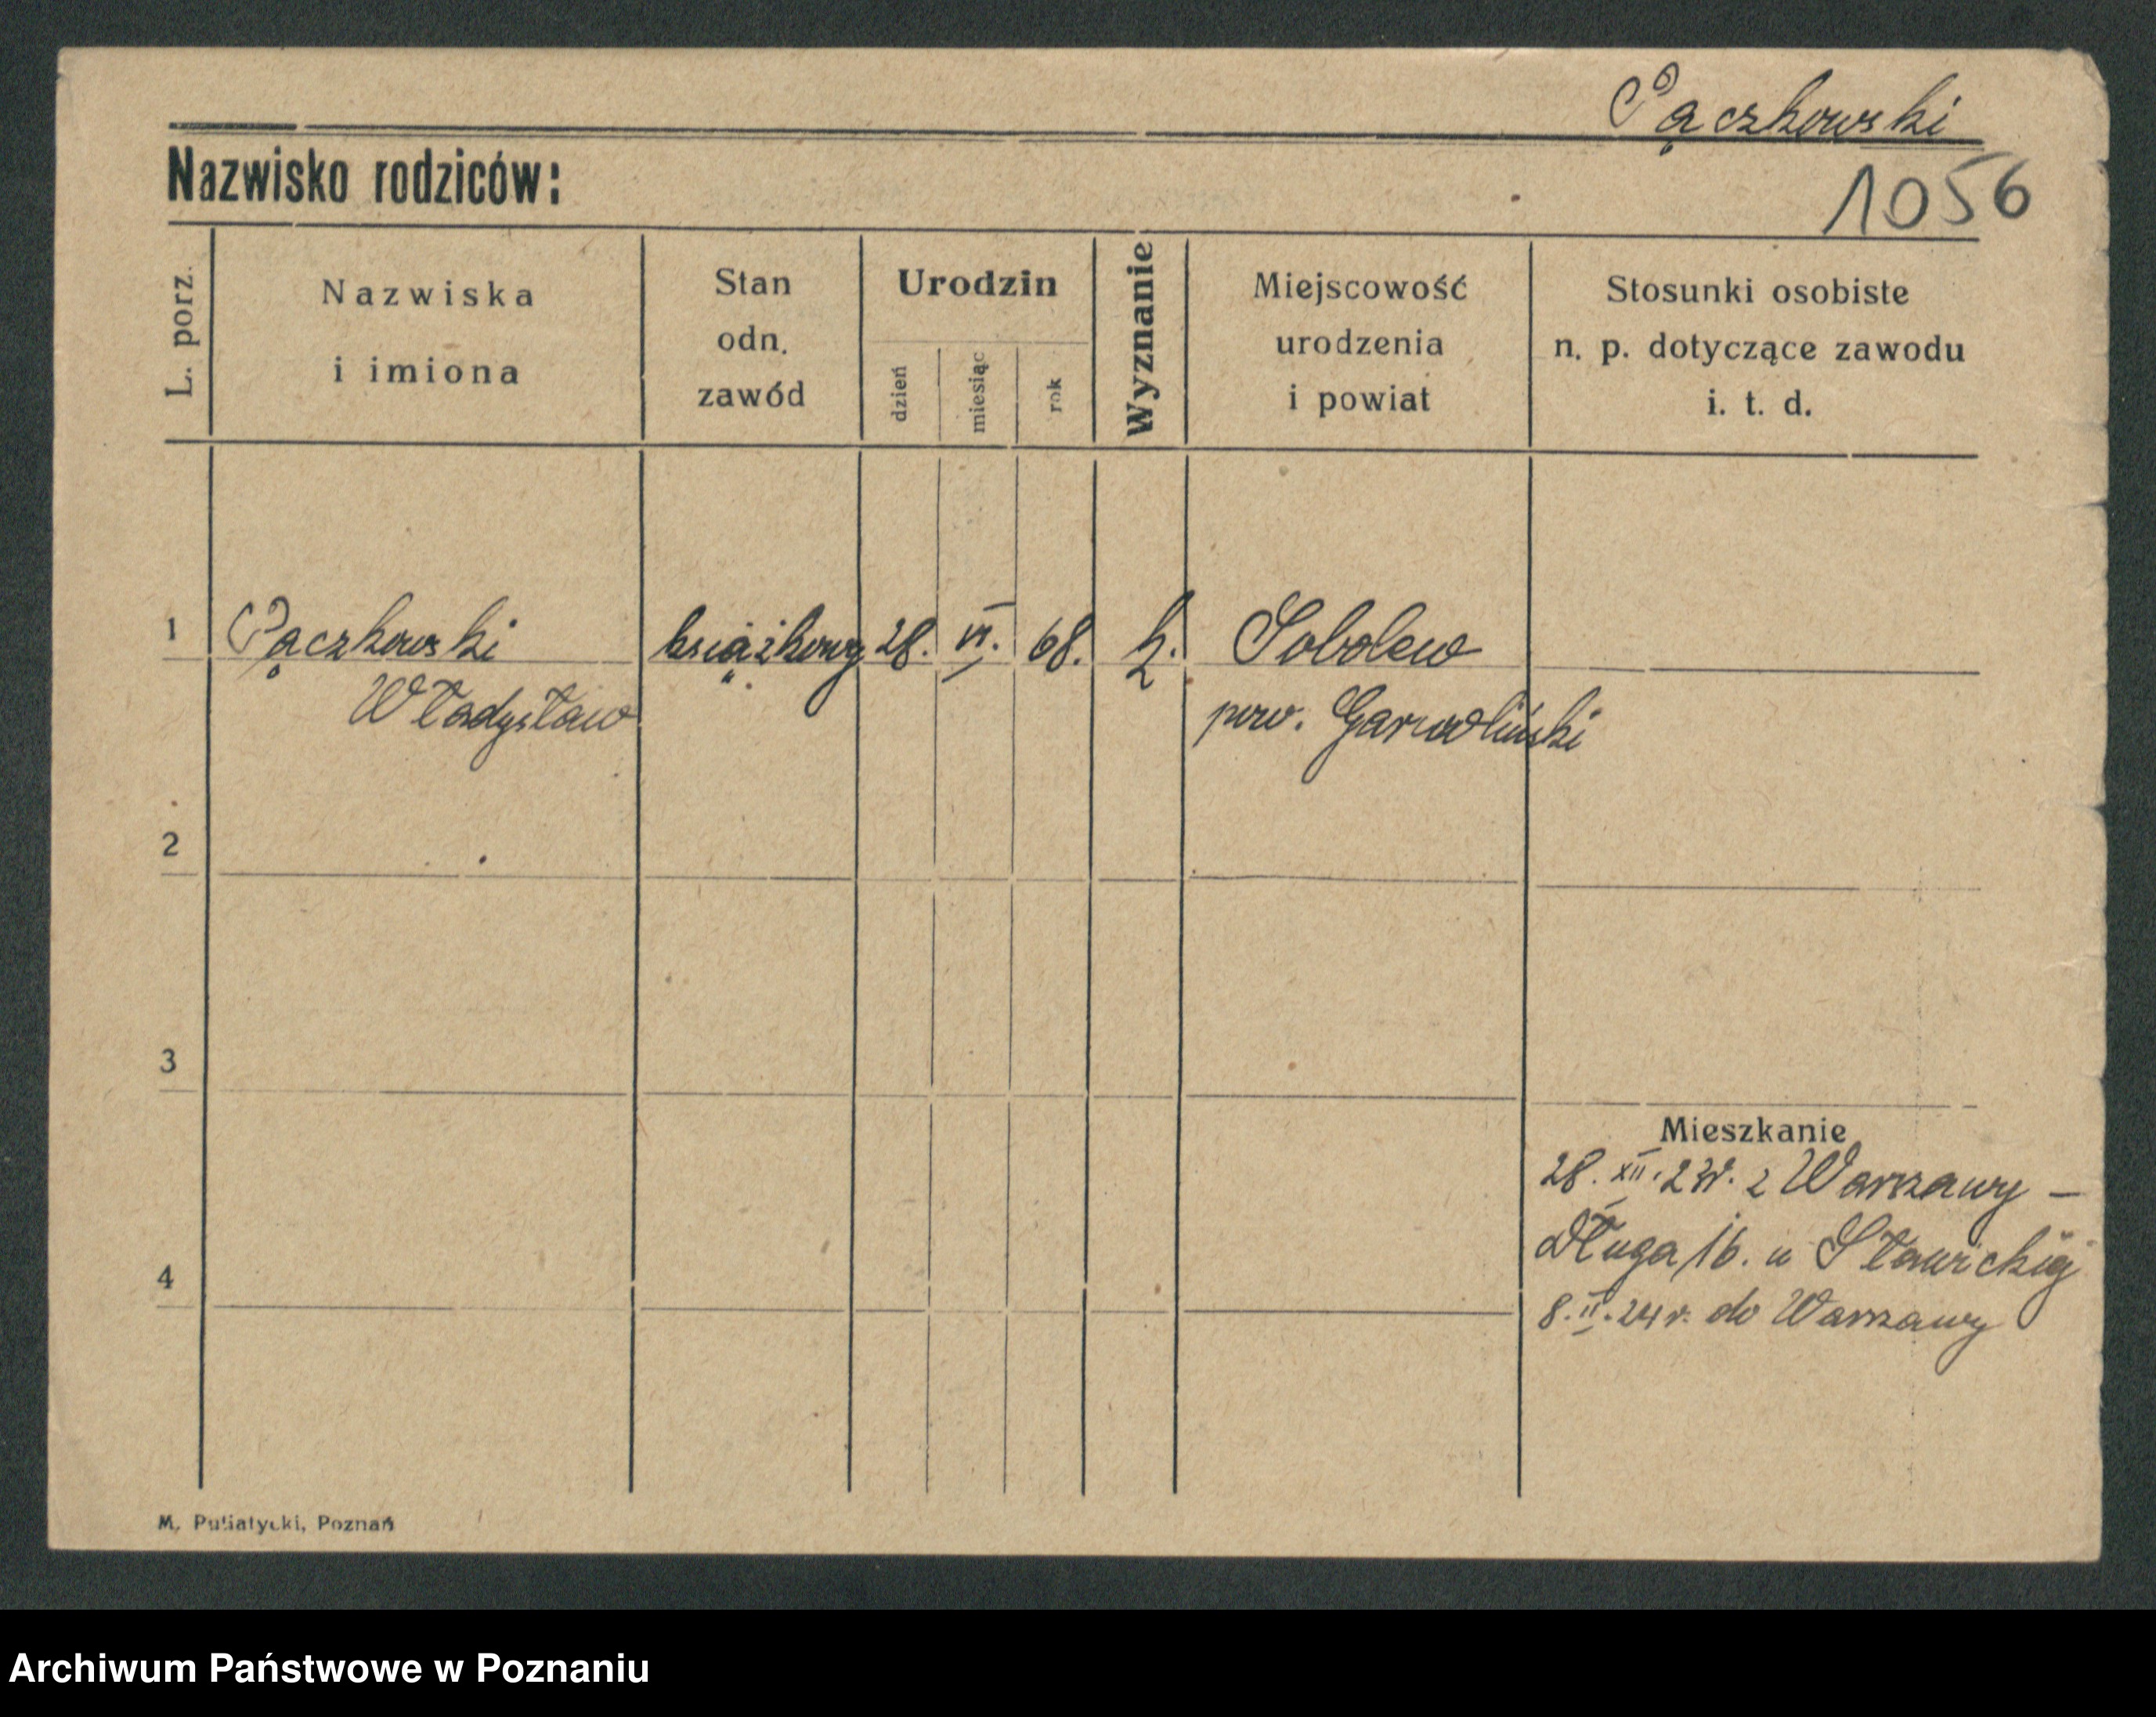 Pączkowski
Nazwisko rodziców:
1056
L. porz.
Nazwiska
i imiona
Stan
odn.
zawód
Urodzin
dzień
miesiąc
rok
Wyznanie
Miejscowość
urodzenia
i powiat
Stosunki osobiste
n. p. dotyczące zawodu
i. t. d.
1 Pączkowski książkowy 28. VI. 68. k. Sobolew
Władysław pow. Garwoliński
2
3
Mieszkanie
28. XII. 23r. z Warszawy –
Długa 16. u Sławickiej
4
8. II. 24 r. do Warszawy
M. Putiatycki, Poznań
Archiwum Państwowe w Poznaniu